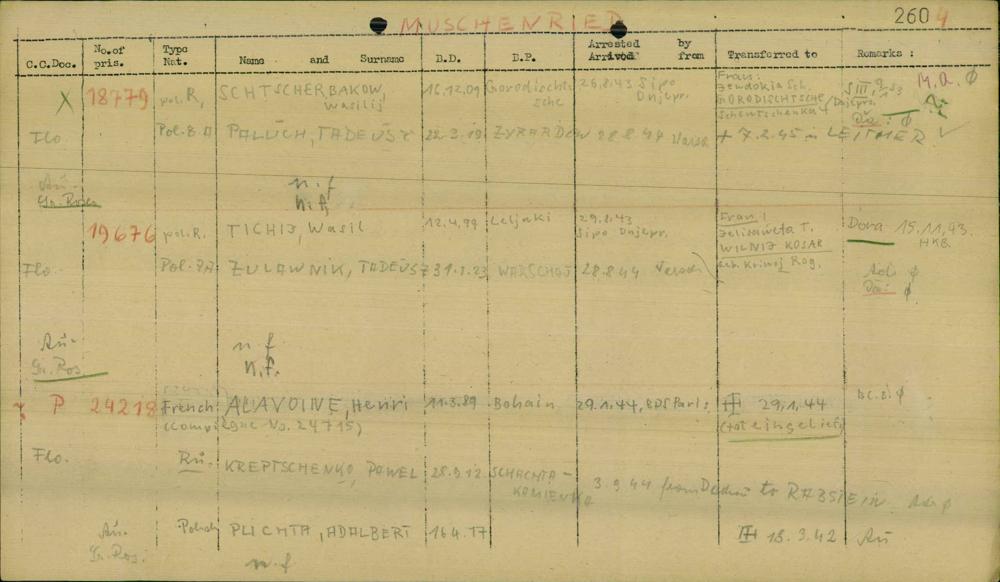 MUSCHENRIED
2604
C.C.Doc. No.of pris. Type Nat. Name and Surname B.D. B.P. Arrested Arrived by from Transferred to Remarks :
X 18779 pol.R, SCHTSCHERBAKOW, Wasilij 16.12.01 26.8.43 Sipo Dnjepr. Frau: Jewdokia Sch. GORODISCHTSCHE M.A. Ø
Flo. Pol. PALUCH, TADEUSZ 22.3.19 ZYRARDOW 28.8.44 + 7.2.45 in LEITMER ✓
Au-
Gr. Ros.
n.f
n.f.
19676 pol.R. TICHIJ, Wasil 12.4.99 Leljaki 29.8.43 Sipo Dnjepr. Frau: Jelisaweta T. WILNIJ KOSAR Dora 15.11.43. HKB.
Flo. Pol. ZULAWNIK, TADEUSZ 31.1.23 WARSCHAU 28.8.44
Au-
Gr. Ros.
n.f
n.f.
P 24218 French ALAVOINE, Henri 11.3.89 Bohain 29.1.44, BDS Paris 29.1.44
(Compiègne No. 24715) (tot eingelief)
Flo. Ru. KREPTSCHENKO, PAWEL 28.9.12 SCHACHTA-KAMIENKA 3.9.44 from Dachau to RABSTEIN
Au- Gr. Ros. PLICHTA, ADALBERT 16.4.17 18.3.42 Au
n.f